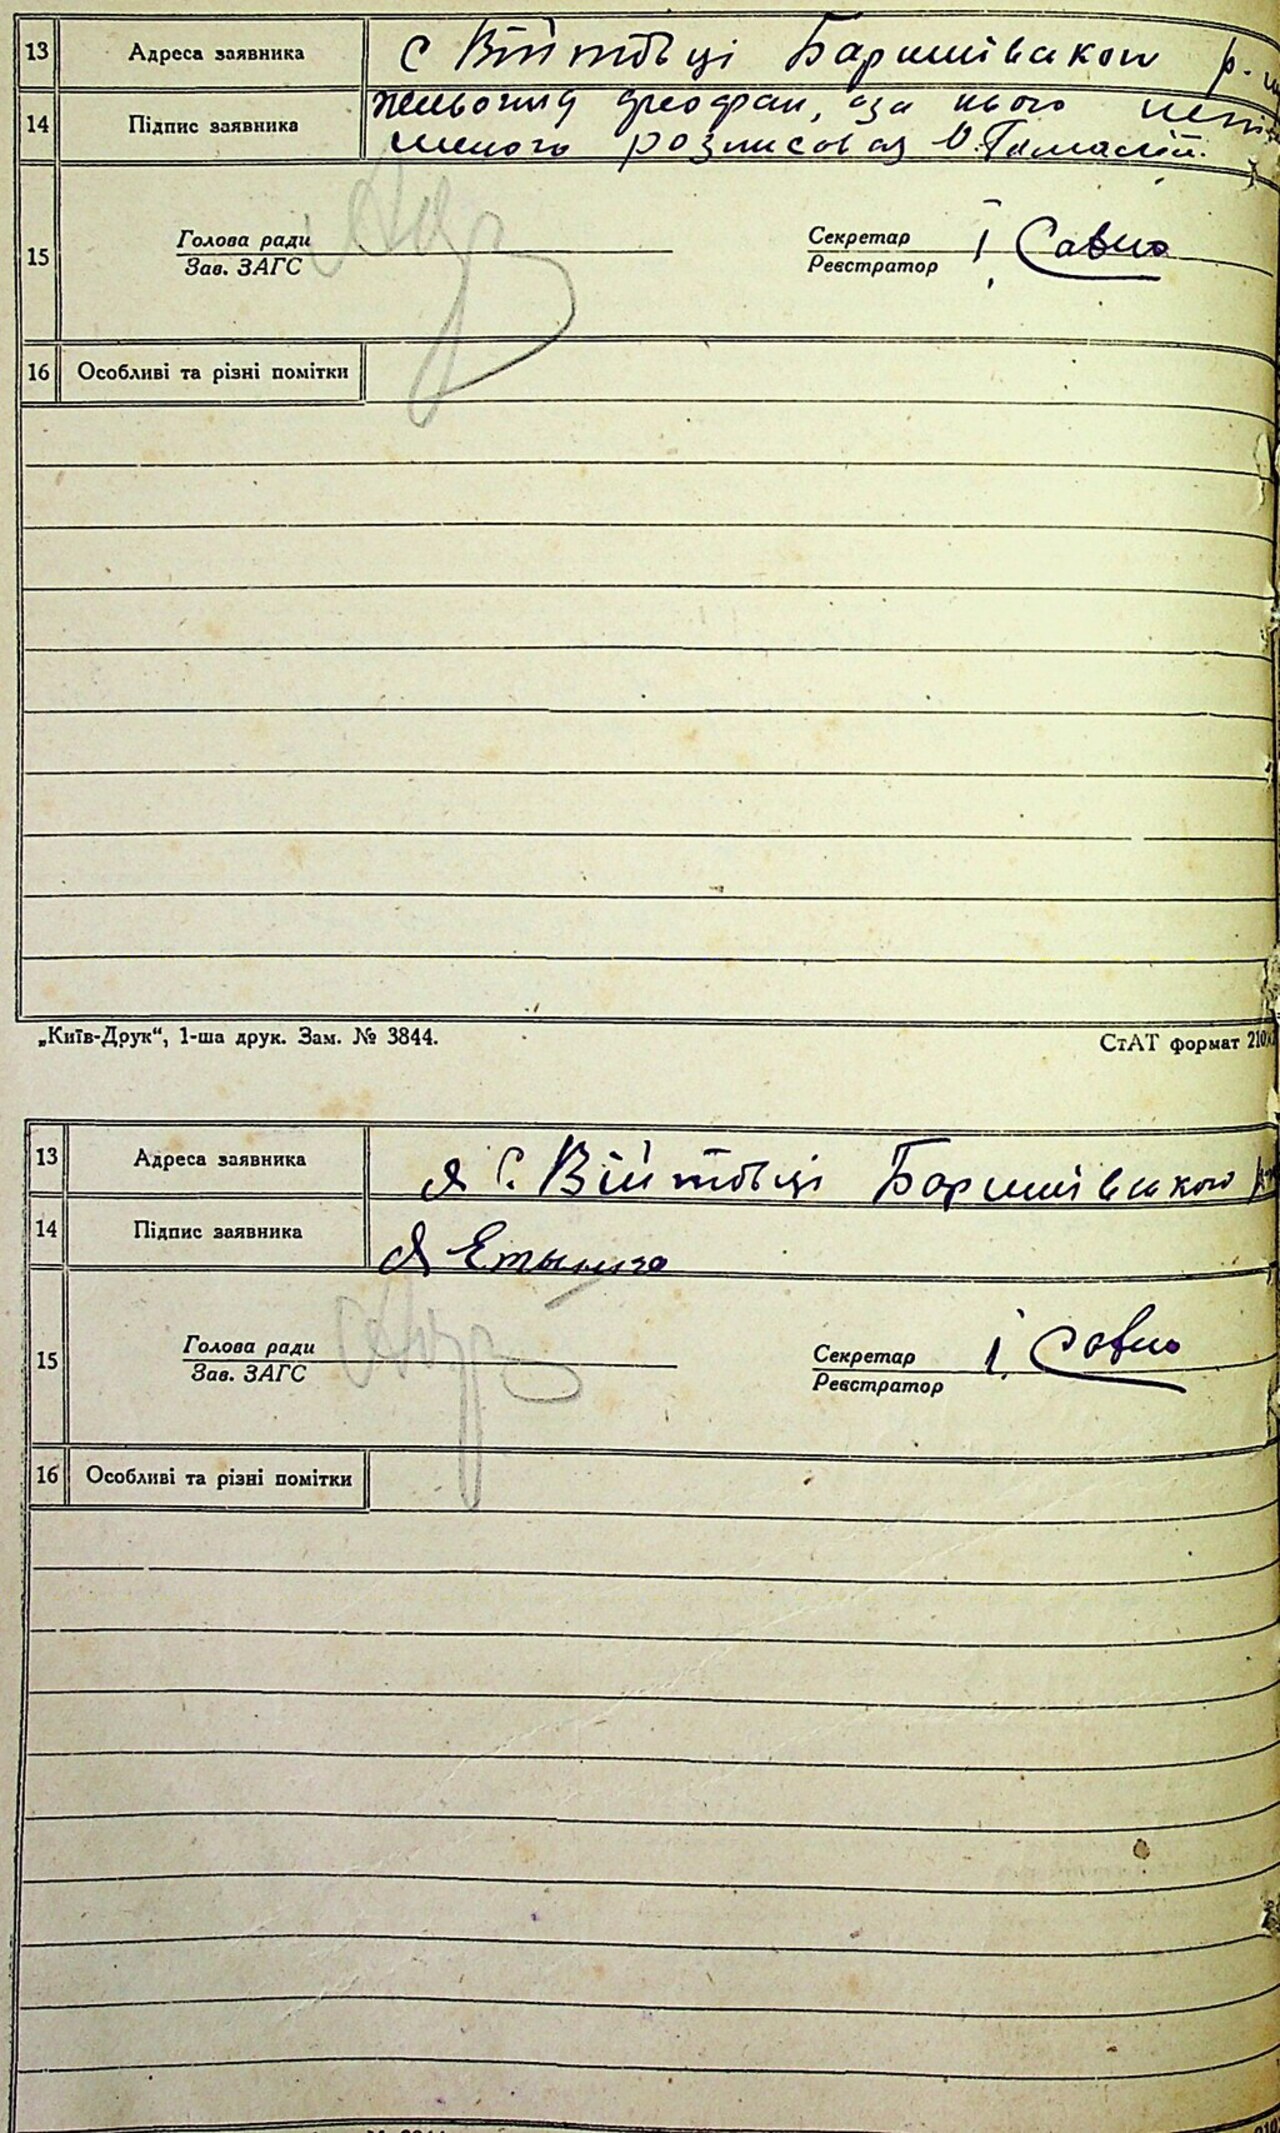 13 Адреса заявника с Війтовці Баришівського р.
14 Підпис заявника за нього непис
менного розписовая
15 Голова ради
Зав. ЗАГС
Секретар І Савко
Реєстратор
16 Особливі та різні помітки
„Київ-Друк“, 1-ша друк. Зам. № 3844.
СтАТ формат 210
13 Адреса заявника с. Війтовці Баришівського
14 Підпис заявника
15 Голова ради
Зав. ЗАГС
Секретар І. Савко
Реєстратор
16 Особливі та різні помітки